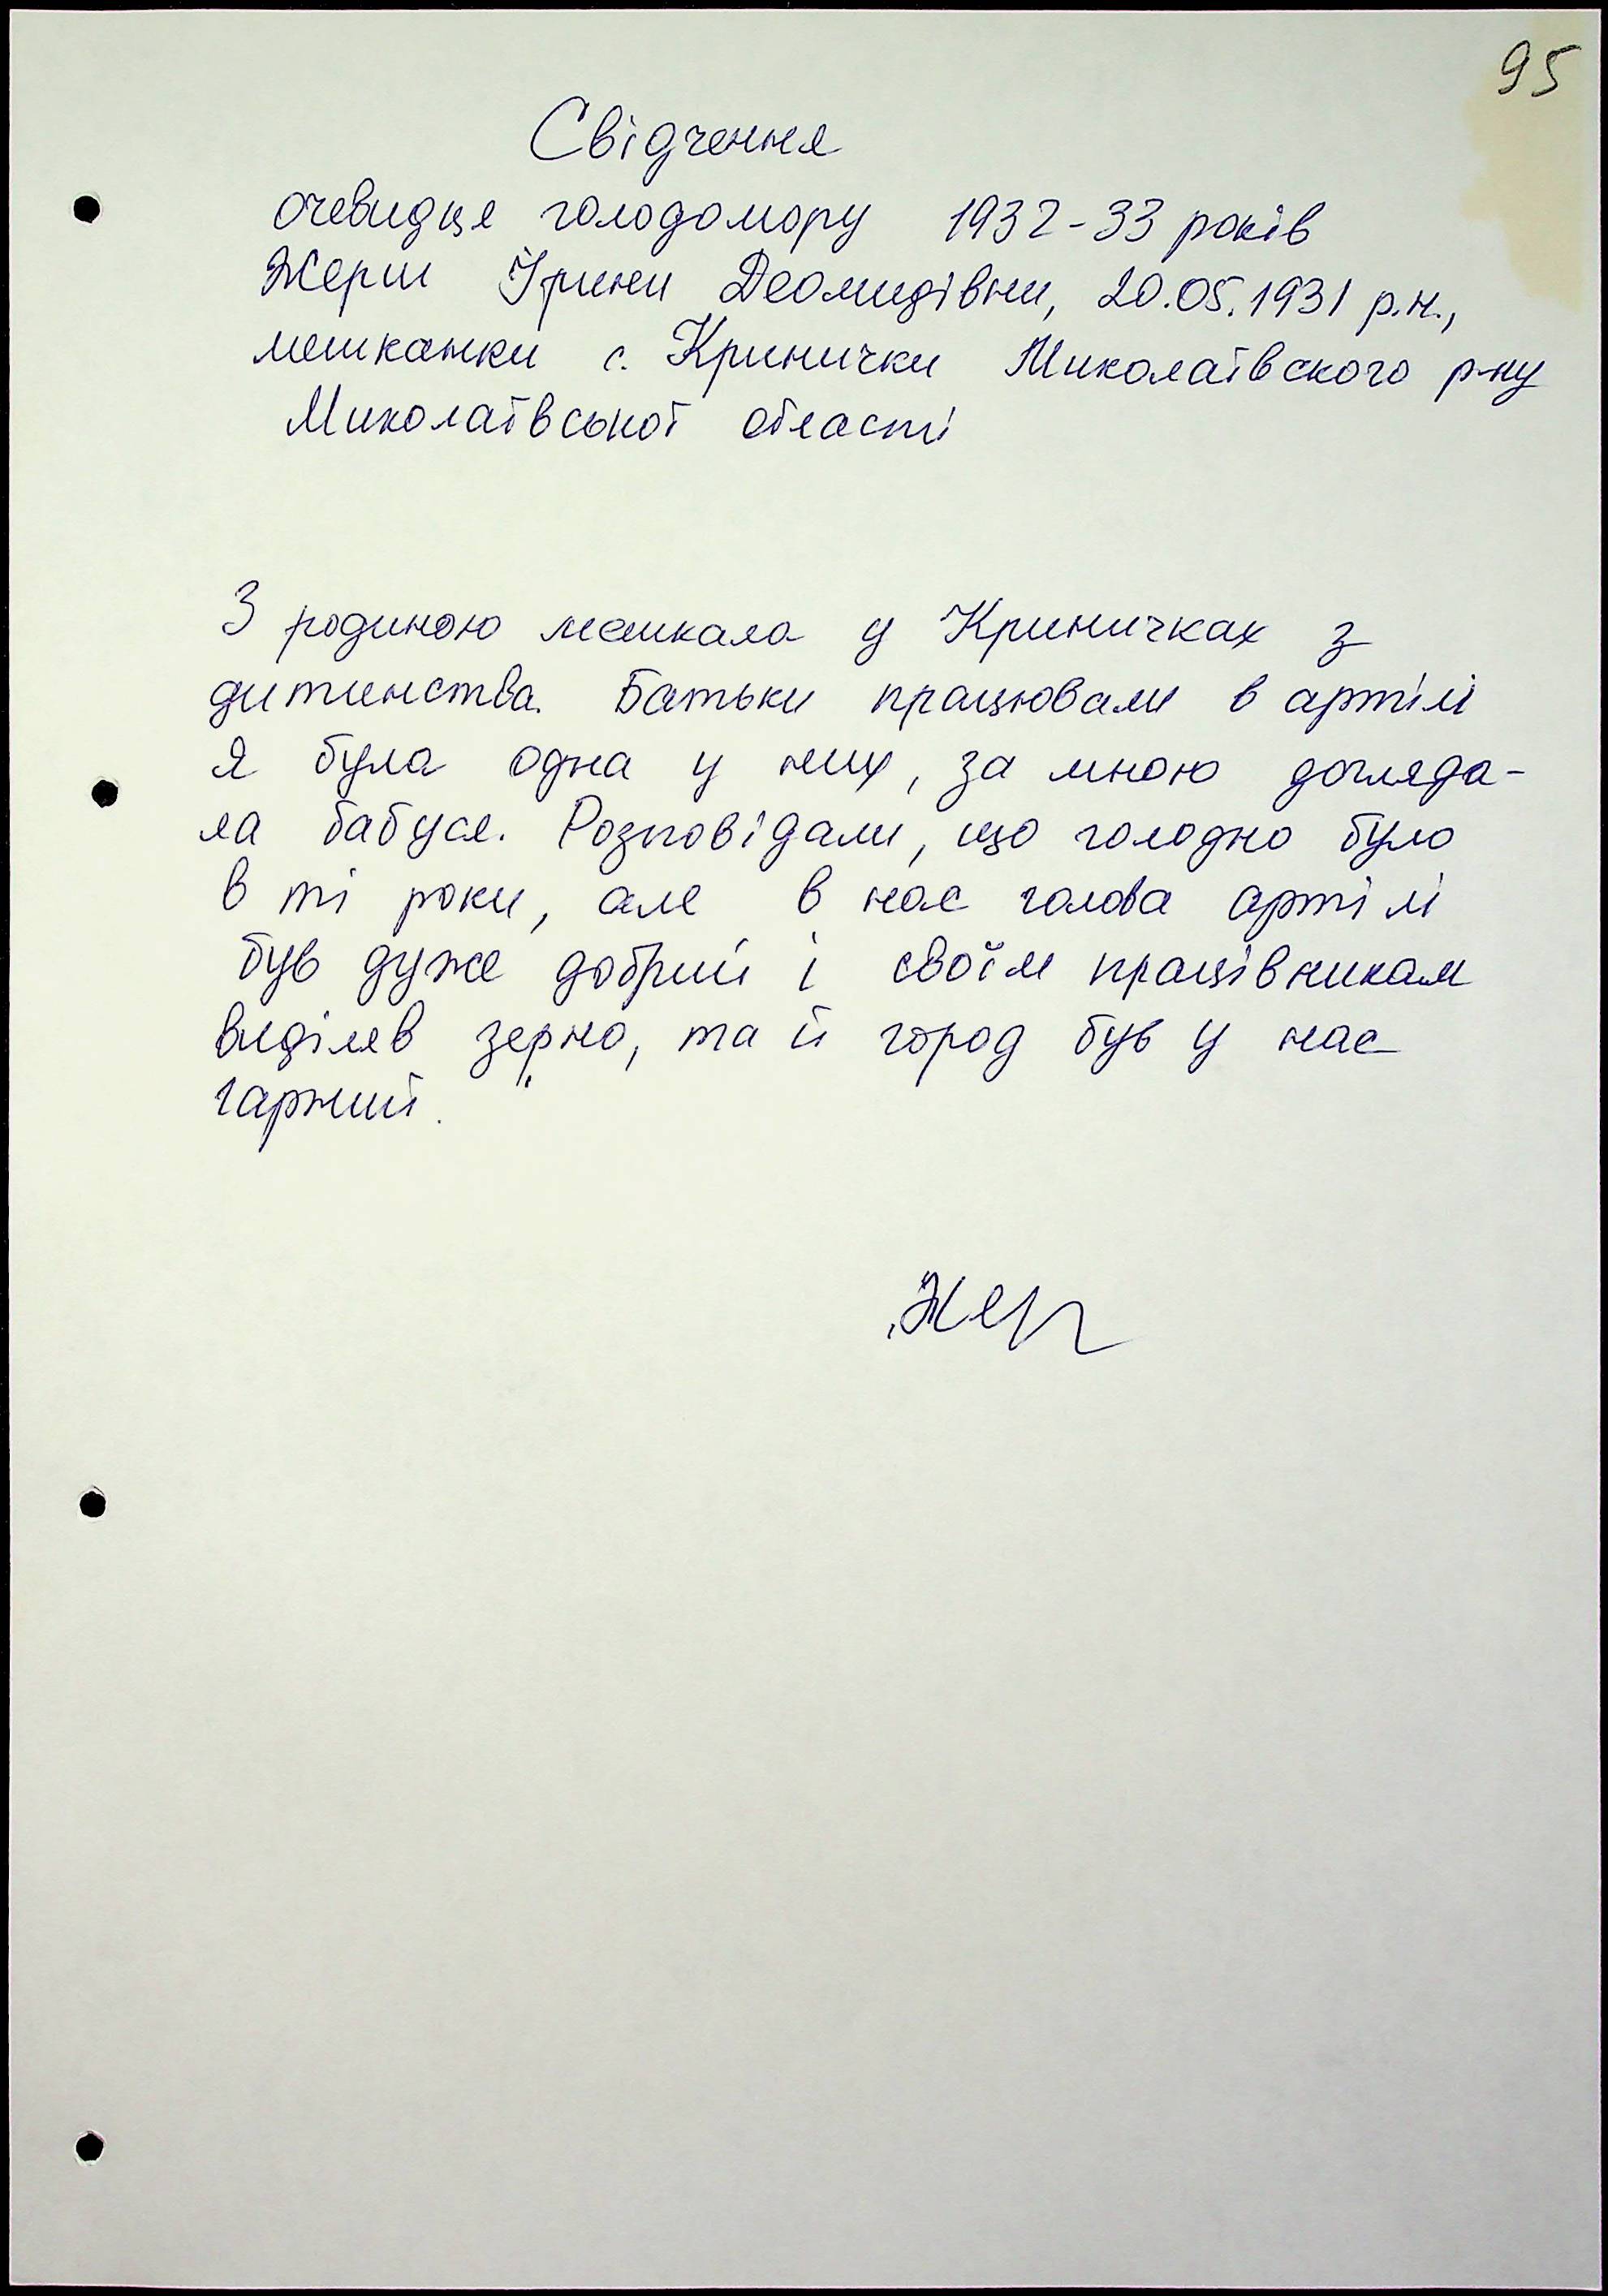 95
Свідчення
очевидця голодомору 1932-33 років
Жерш Ірини Деомидівни, 20.05.1931 р.н.,
мешканки с. Кринички Миколаївского р-ну
Миколаївської області
З родиною мешкала у Криничках з
дитинства. Батьки працювали в артілі
Я була одна у них, за мною догляда-
ла бабуся. Розповідали, що голодно було
в ті роки, але в нас голова артілі
був дуже добрий і своїм працівникам
виділяв зерно, та й город був у нас
гарний.
Жер